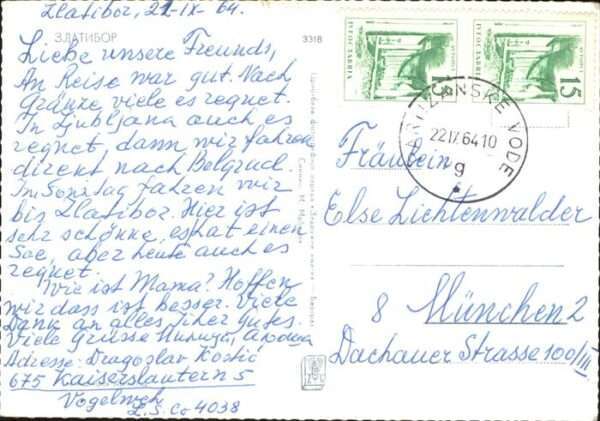 Zlatibor, 21-IX-64.
ЗЛАТИБОР 3318
Liebe unsere Freunds,
An Reise war gut. Nach
Gränze viele es regnet.
In Ljubljana auch es
regnet, dann wir fahren
direkt nach Belgrad.
Im Sonntag fahren wir
bis Zlatibor. Hier ist
sehr schönne, es hat einen
See, aber heute auch es
regnet.
Wie ist Mama? Hoffen
wir dass ist besser. Viele
Dank an alles, iher Gutes.
Viele Grüsse
Adresse: Dragoslav Kostić
675 Kaiserslautern 5
Vogelweh
L.S. Co 4038
15 15
JUGOSLAVIA
VODE
22IX6410
g
Fräulein
Else Lichtenwalder
8 München 2
Dachauer Strasse 100/III